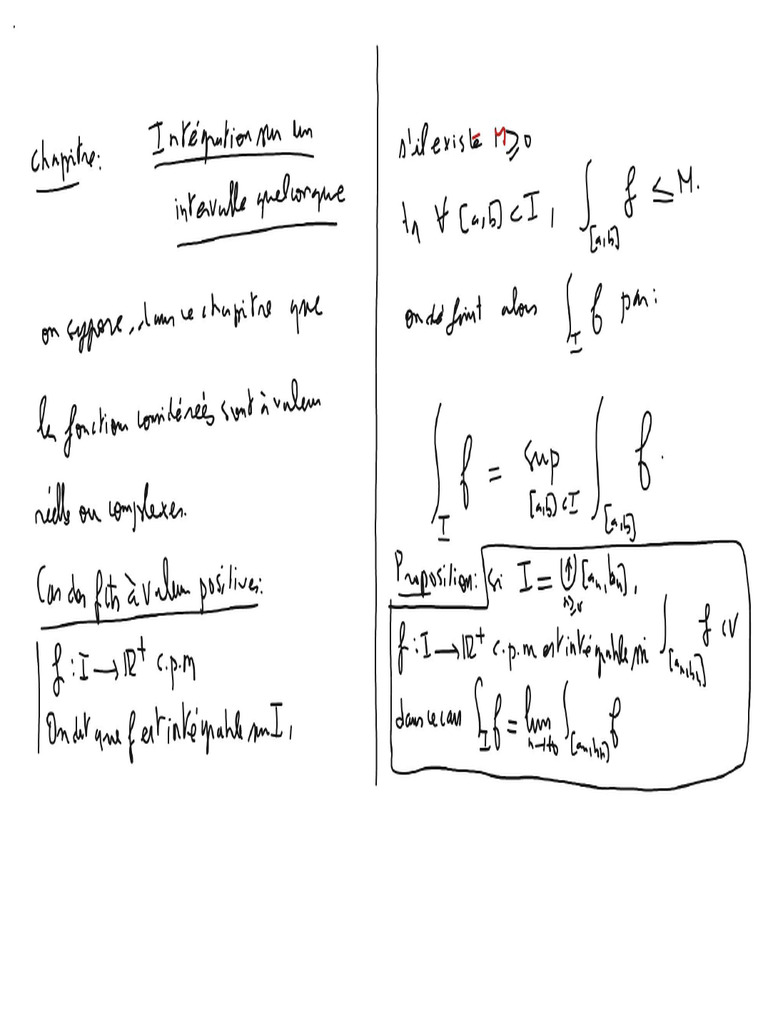 chapitre: Intégration sur un
intervalle quelconque
on suppose, dans ce chapitre que
les fonction considérées sont à valeur
réelle ou complexes.
Cas des fcts à valeur positives:
f : I → ℝ⁺ c.p.m
On dit que f est intégrable sur I,
s'il existe M ⩾ 0
tq ∀ [a,b] ⊂ I, ∫_[a,b] f ≤ M.
on définit alors ∫_I f par:
∫_I f = sup_{[a,b] ⊂ I} ∫_[a,b] f.
Proposition: si I = ⋃↑_{n⩾0} [aₙ, bₙ],
f : I → ℝ⁺ c.p.m est intégrable ssi ∫_[aₙ,bₙ] f cv
dans ce cas ∫_I f = lim_{n→+∞} ∫_[aₙ,bₙ] f